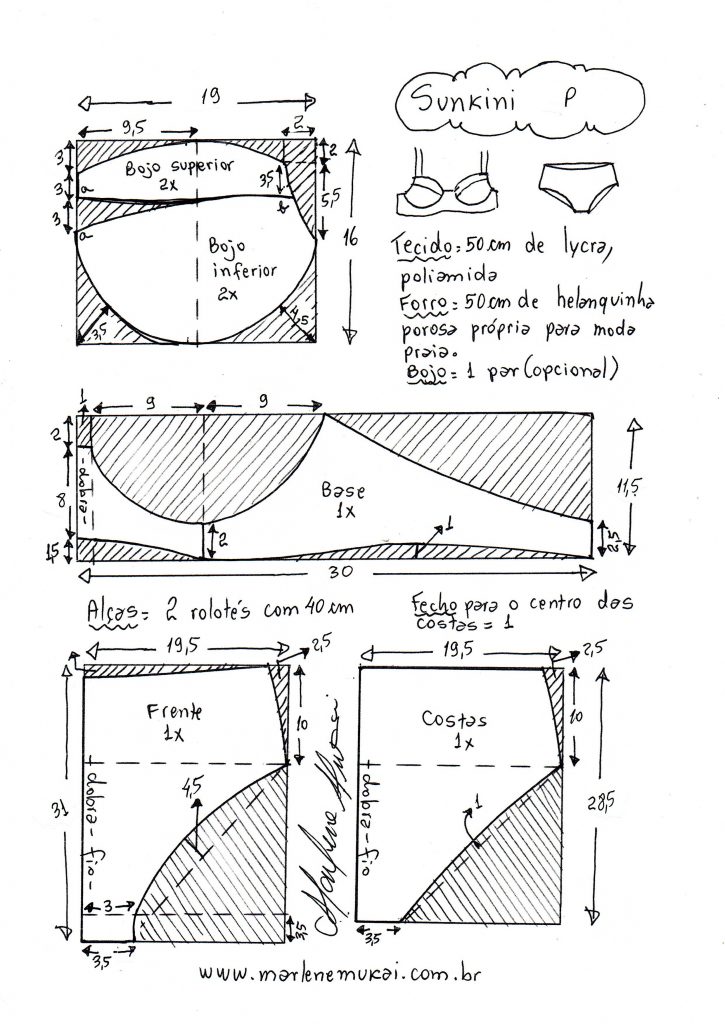 Sunkini P
19
9,5
2
3
3
3
a
a
Bojo superior
2x
3,5
b
2
5,5
16
Bojo
inferior
2x
3,5
4,5
Tecido = 50 cm de lycra,
poliamida
Forro = 50 cm de helanquinha
porosa própria para moda
praia.
Bojo = 1 par (opcional)
1
9
9
2
8
1,5
-dobra-
Base
1x
2
1
11,5
2,5
30
Alças = 2 rolotês com 40 cm
Fecho para o centro das
costas = 1
19,5
2,5
Frente
1x
10
31
4,5
dobra-fio-
3
3,5
3,5
Marlene Mukai
19,5
2,5
Costas
1x
10
28,5
1
dobra-fio
3,5
www.marlenemukai.com.br